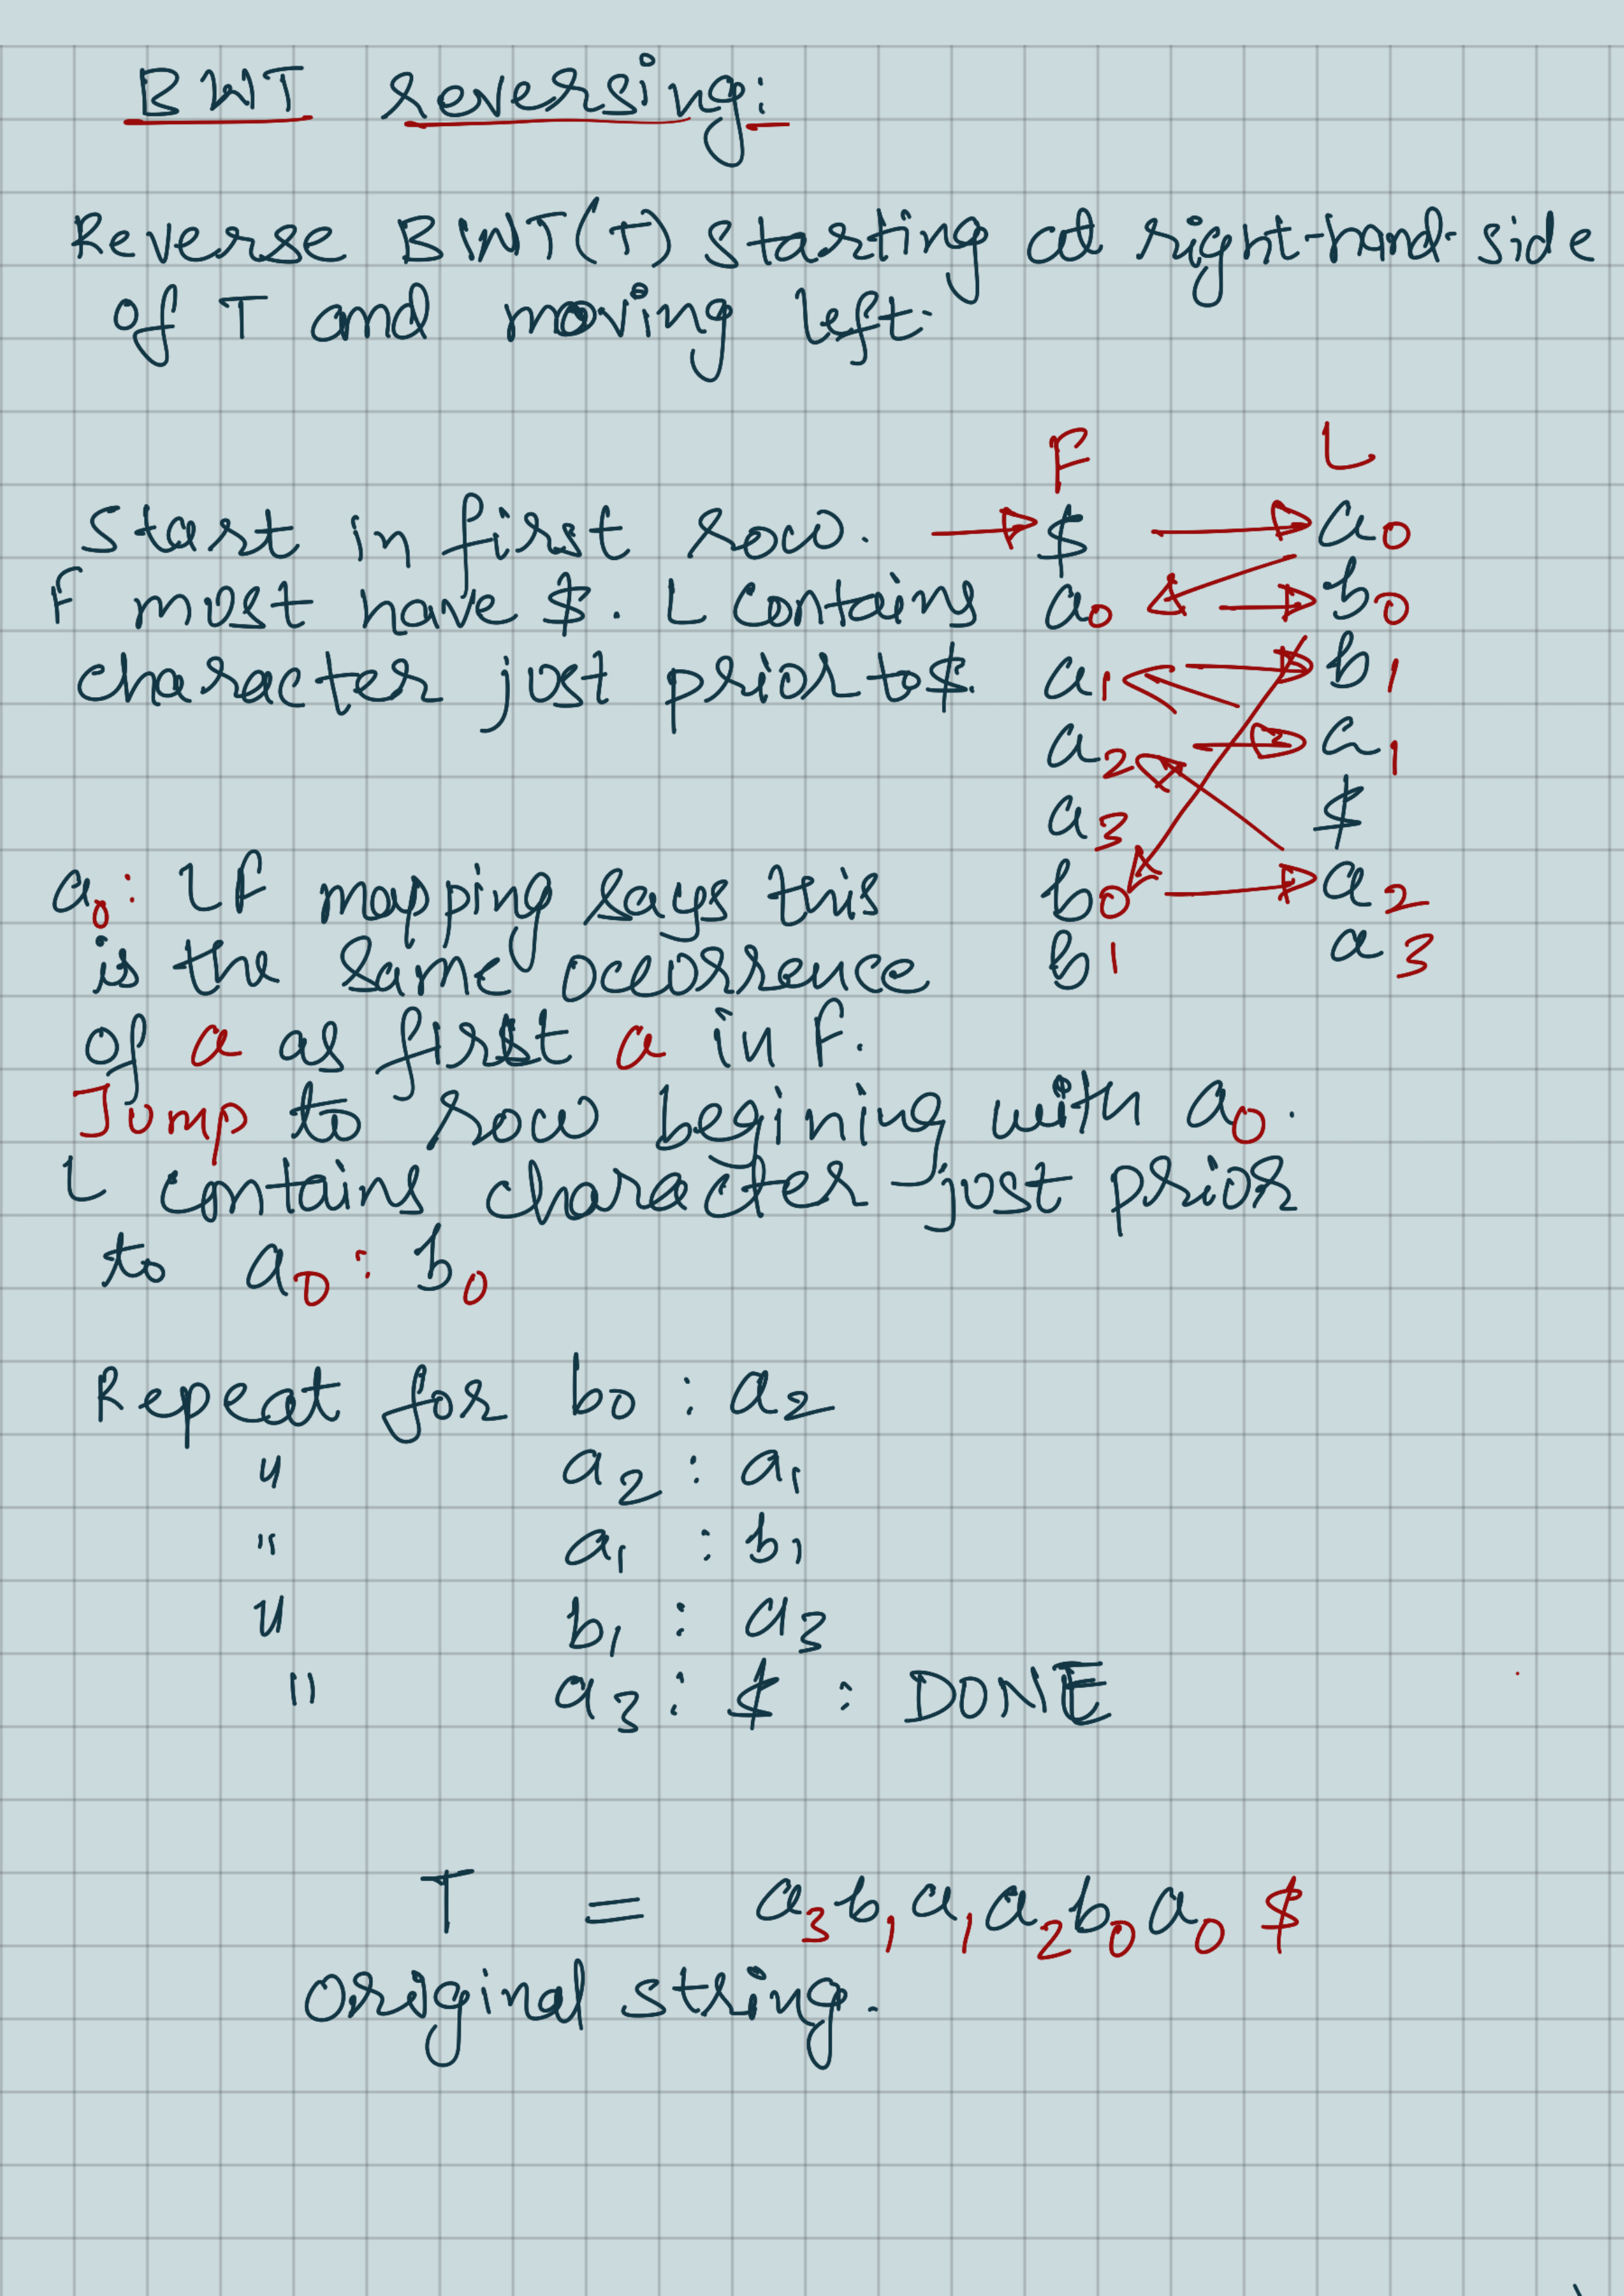 BWT reversing:
Reverse BWT(T) starting at right-hand-side
of T and moving left.
F L
Start in first row. $ a0
F must have $. L contains a0 b0
character just prior to $. a1 b1
a2 a1
a3 $
a0: LF mapping says this b0 a2
is the same occurrence b1 a3
of a as first a in F.
Jump to row begining with a0.
L contains character just prior
to a0: b0
Repeat for b0 : a2
" a2 : a1
" a1 : b1
" b1 : a3
" a3 : $ : DONE
T = a3b1a1a2b0a0 $
Original string.